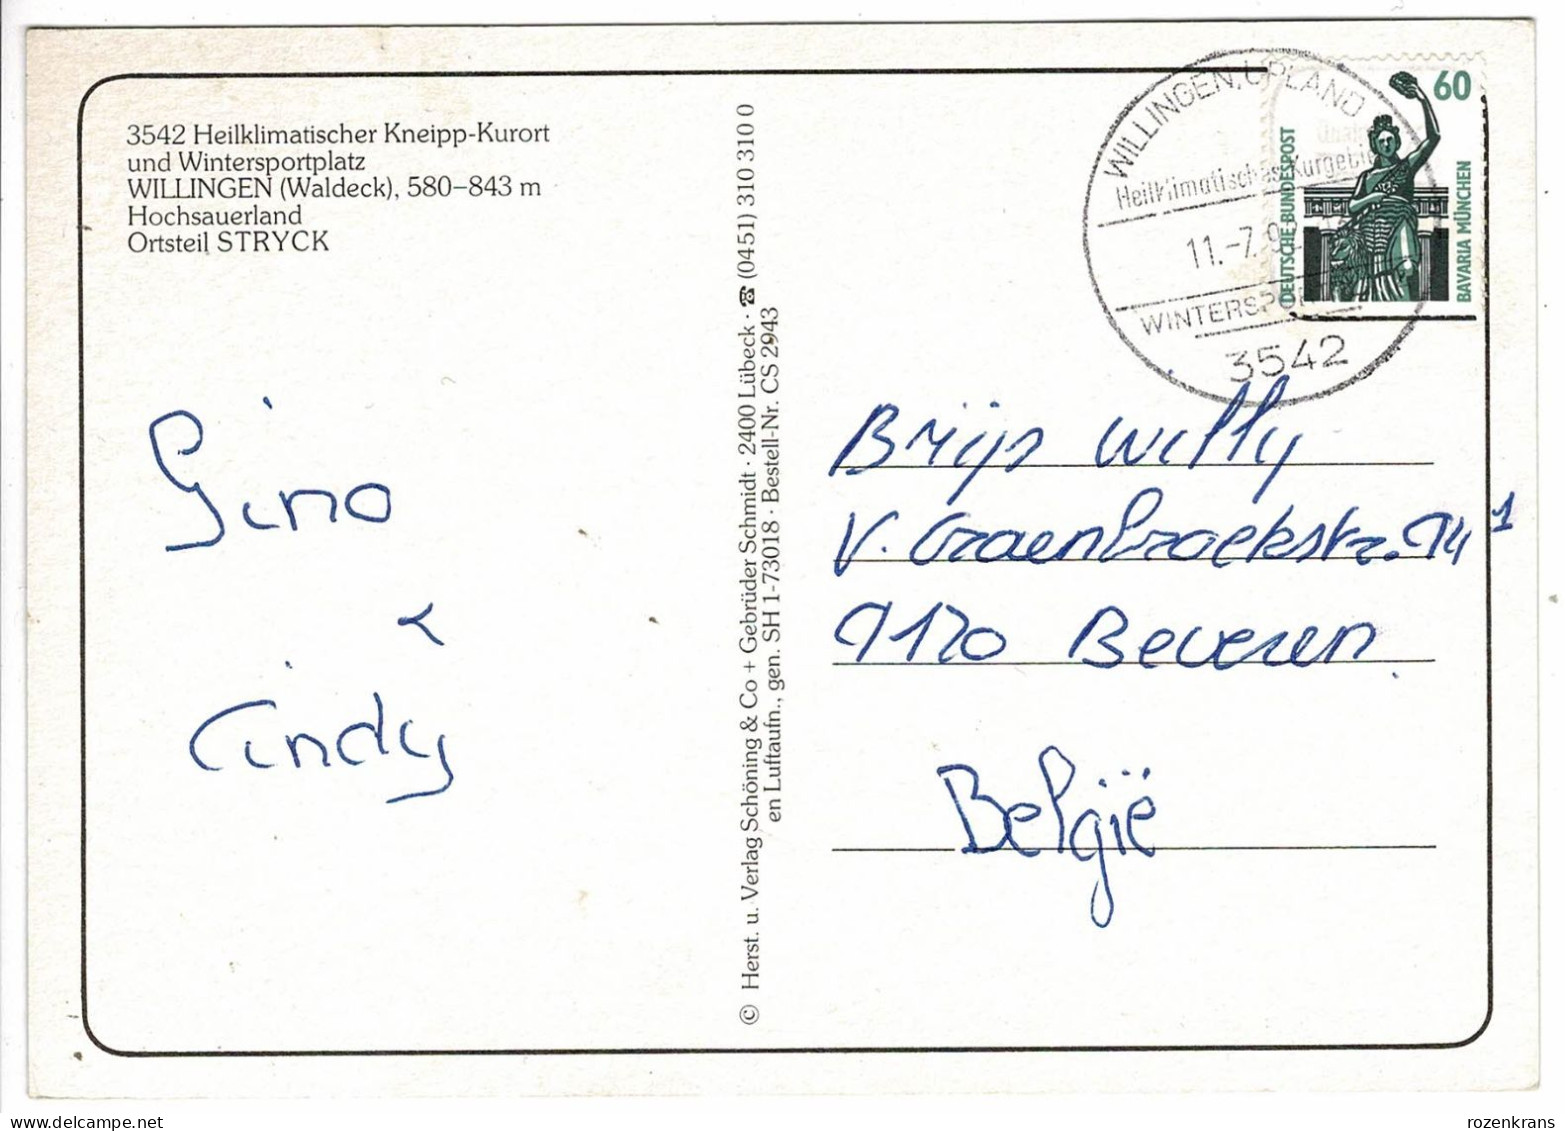 3542 Heilklimatischer Kneipp-Kurort
und Wintersportplatz
WILLINGEN (Waldeck), 580–843 m
Hochsauerland
Ortsteil STRYCK
Gino
<
Cindy
© Herst. u. Verlag Schöning & Co + Gebrüder Schmidt · 2400 Lübeck · ☎ (0451) 310 310 0
en Luftaufn., gen. SH 1-73018 · Bestell-Nr. CS 2943
WILLINGEN, UPLAND
Heilklimatisches
11.-7.9
3542
60
DEUTSCHE BUNDESPOST
BAVARIA MÜNCHEN
Brijs Willy
V. Craenbroekstr. 14 1
9120 Beveren
België
rozenkrans